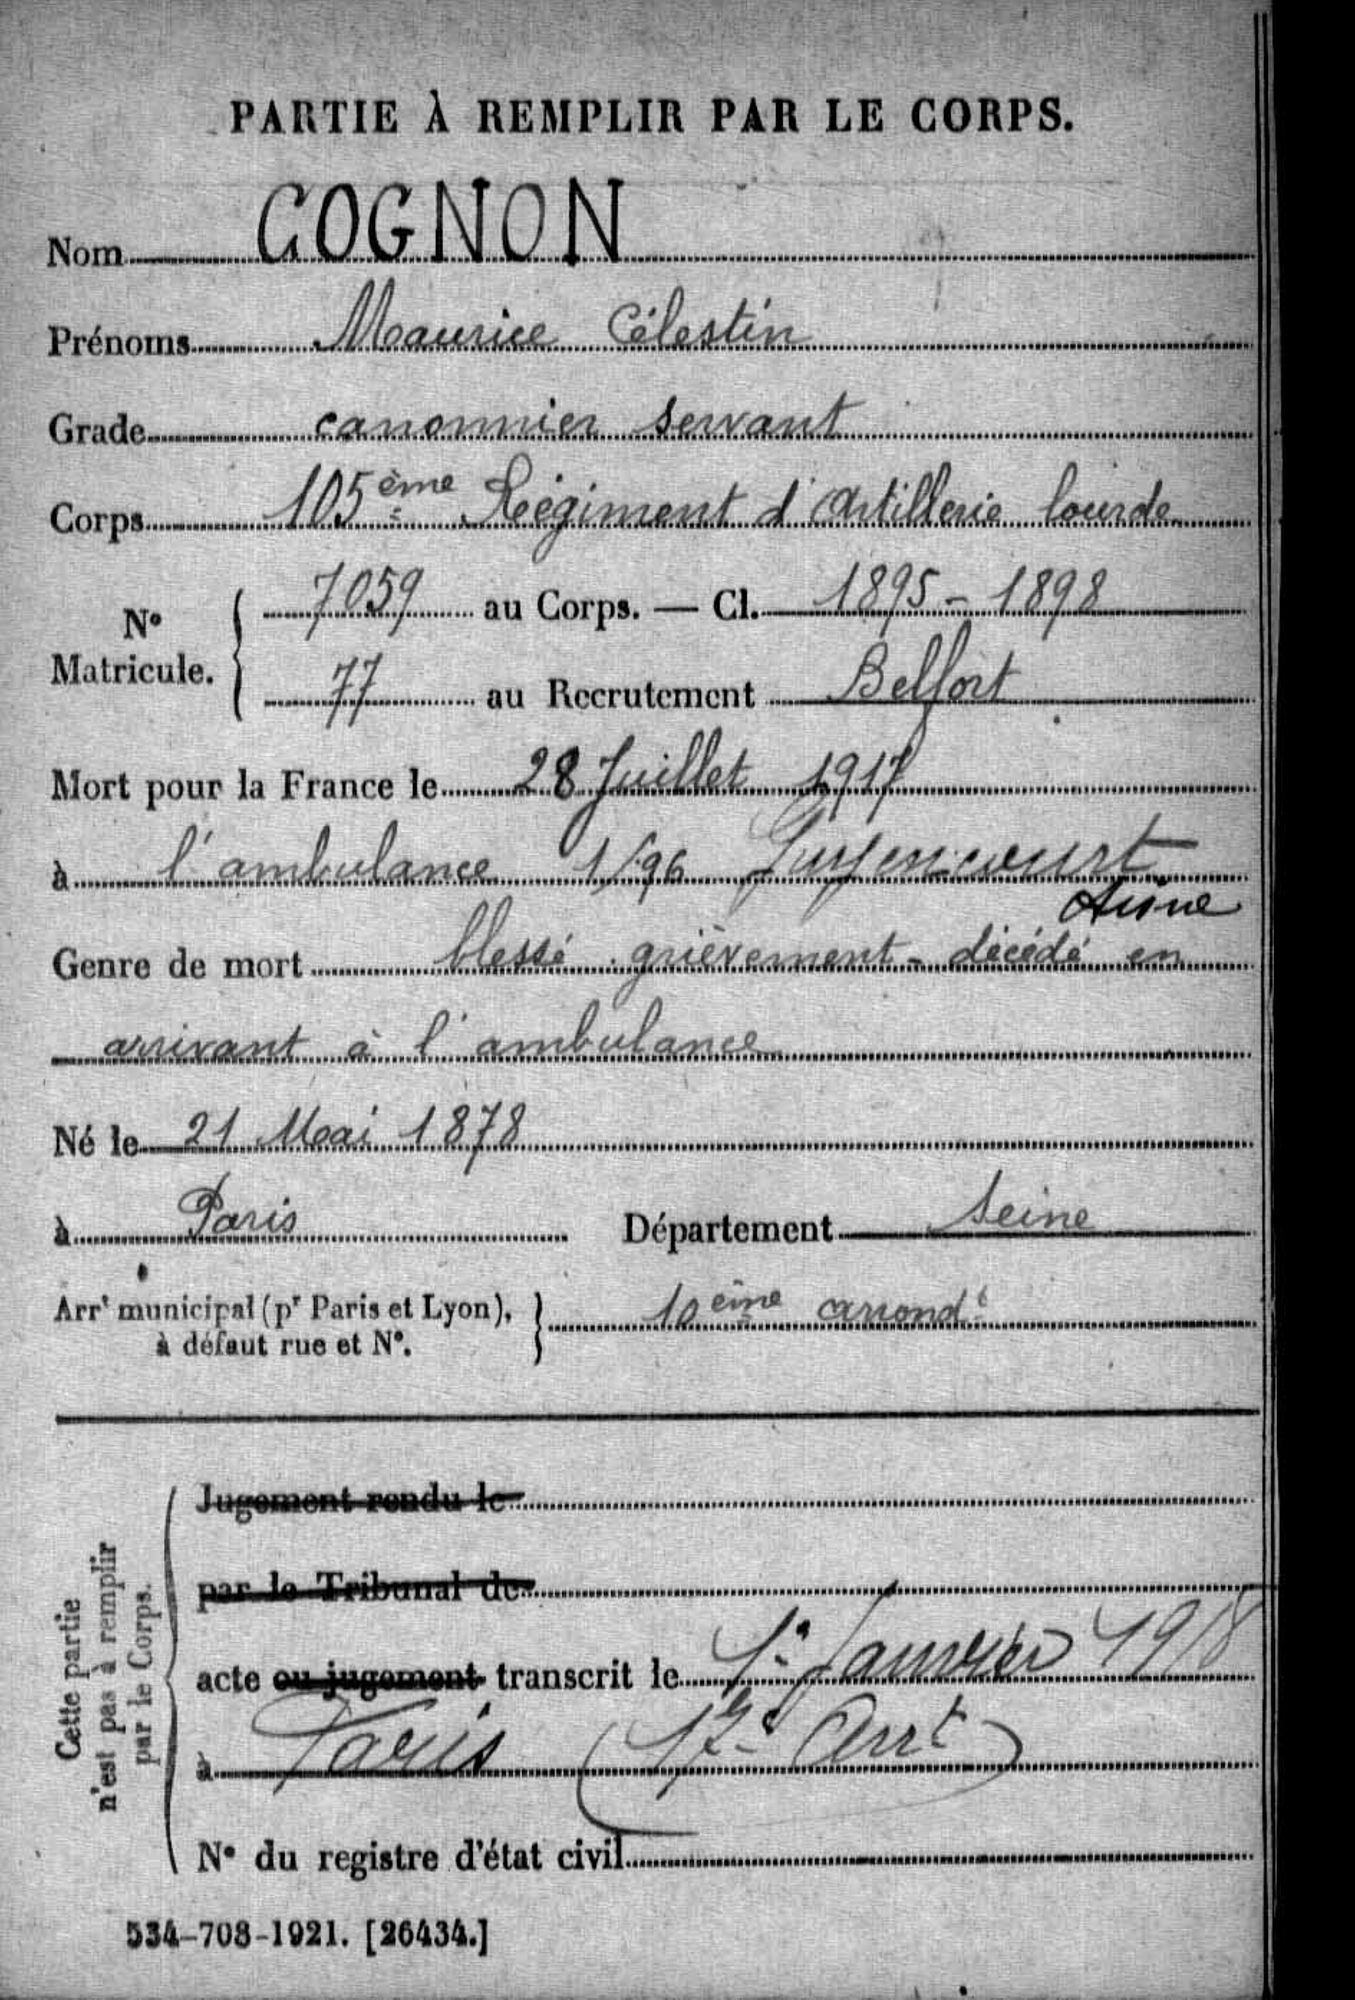 PARTIE À REMPLIR PAR LE CORPS.
Nom COGNON
Prénoms Maurice Célestin
Grade canonnier servant
Corps 105ème Régiment d'Artillerie lourde
N° Matricule. 7059 au Corps. — Cl. 1895 - 1898
77 au Recrutement Belfort
Mort pour la France le 28 Juillet 1917
à l'ambulance 1/96 Guyencourt
Aisne
Genre de mort blessé grièvement - décédé en
arrivant à l'ambulance
Né le 21 Mai 1878
à Paris Département Seine
Arrt municipal (pr Paris et Lyon), à défaut rue et N°. 10ème arrondt
Cette partie n'est pas à remplir par le Corps.
Jugement rendu le
par le Tribunal de
acte ou jugement transcrit le 1er Janvier 1918
à Paris (17e Arrt)
N° du registre d'état civil
534-708-1921. [26434.]